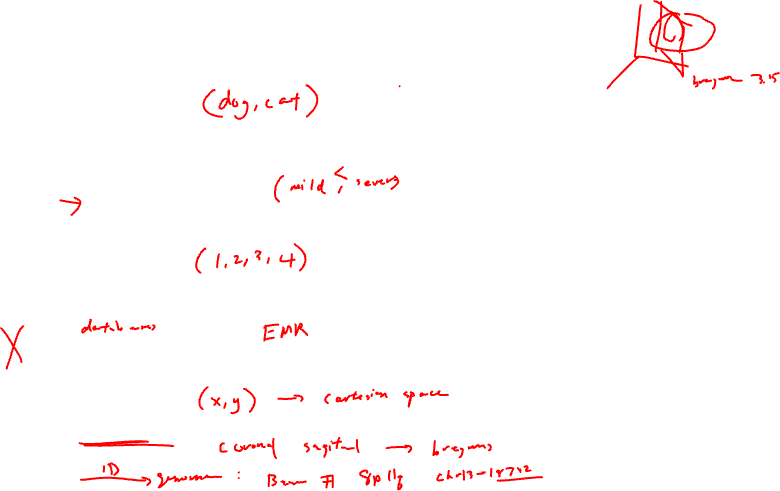 bregma 3.15
(dog, cat)
(mild <, severe)
→
(1, 2, 3, 4)
X databases EMR
(x, y) → cartesian space
coronal sagittal → bregma
1D → genome :